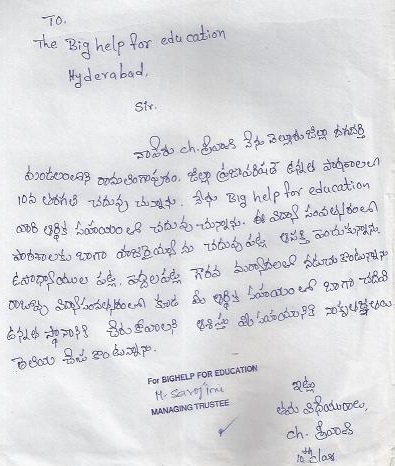 To.
The Big help for education
Hyderabad.
Sir.
నాపేరు ch. శ్రీవాణి నేను నెల్లూరు జిల్లా దగదర్తి
మండలంలోని రామలింగాపురం. జిల్లా ప్రజాపరిషత్ ఉన్నత పాఠశాలలో
10వ తరగతి చదువు చున్నాను. నేను Big help for education
వారి ఆర్థిక సహాయంతో చదువు చున్నాను. ఈ విద్యా సంవత్సరంలో
పాఠశాలకు బాగా చదువు పట్ల ఆసక్తి
ఉపాధ్యాయుల పట్ల, పెద్దలపట్ల గౌరవ
రాబోవు విద్యాసంవత్సరంలో కూడ మీ ఆర్థిక సహాయంతో బాగా చదివి
ఉన్నత స్థానానికి
తెలియ చేసు కొంటున్నాను.
For BIGHELP FOR EDUCATION
M. Sarojini
MANAGING TRUSTEE
ఇట్లు
తమ విధేయురాలు,
ch. శ్రీవాణి
10th class